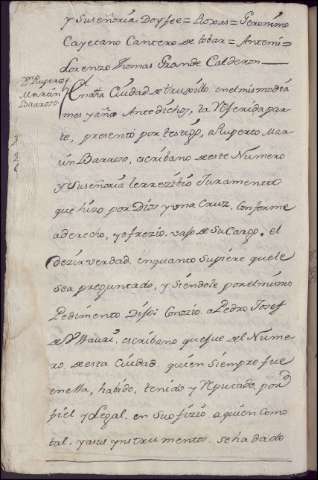 y Suseñoria Doyfee = Roxas = Geronimo
Cayetano Cantero de tobar = Antemi =
Lorenzo Thomas Grande Calderon
Ruperto
Martin
Barroso
En dha Ciudad de truxillo, en el mismo dia
mes y año Antedichos, la Referida par
te, presentó por testigo, a Ruperto Mar
tin Barroso, escribano de este Numero
y Suseñoria le rrezibio Juramento
que hizo por Dios y una Cruz, Conforme
a derecho, y ofrezio, vajo de Su Cargo, el
dezir verdad, en quanto Supiere y le
sea preguntado, y Siendole por el mismo
Pedimento Dijo: Conozio a Pedro Josef
de escribano que fue del Nume
ro, de esta Ciudad, quien Siempre fue
en ella, habido, tenido y Reputado, por
fiel y Legal, en Su ofizio, a quien como
tal, y a sus ynstrumentos, se ha dado